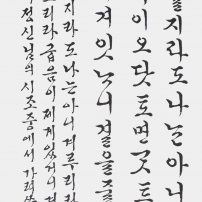 지라도나는아니
이오닷토면굿트
잇낫니결을줄
지라도나는아니겨루리라
리라굽음이제게있거니겨
정신님의시조중에서가려